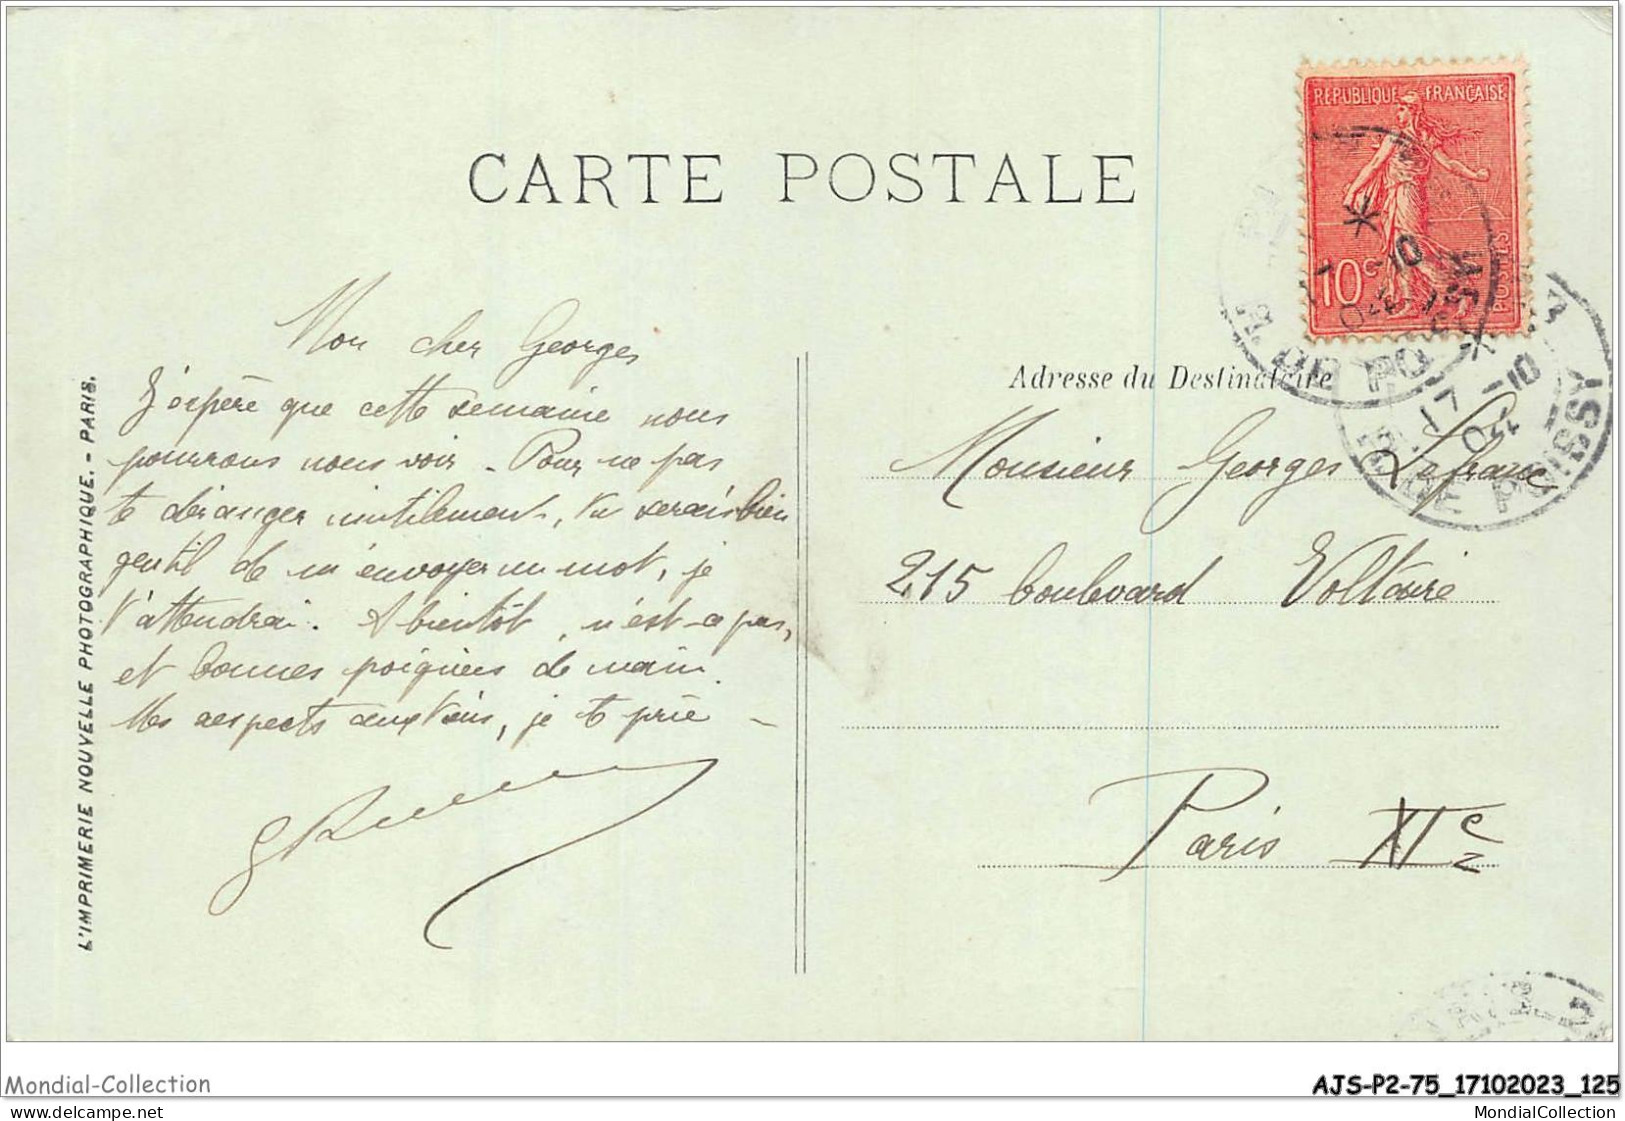 CARTE POSTALE
REPUBLIQUE FRANÇAISE
10c
POSTES
17 -10
04
DE POISSY
Mon cher Georges
J'espère que cette semaine nous
pourrons nous voir - Pour ne pas
te déranger inutilement, tu serais bien
gentil de m'envoyer un mot, je
t'attendrai. A bientôt, n'est-ce pas,
et bonnes poignées de main.
Mes respects aux tiens, je te prie -
Adresse du Destinataire
Monsieur Georges Lefranc
215 boulevard Voltaire
Paris XIe
L'IMPRIMERIE NOUVELLE PHOTOGRAPHIQUE. - PARIS.
Mondial-Collection
AJS-P2-75_17102023_125
MondialCollection